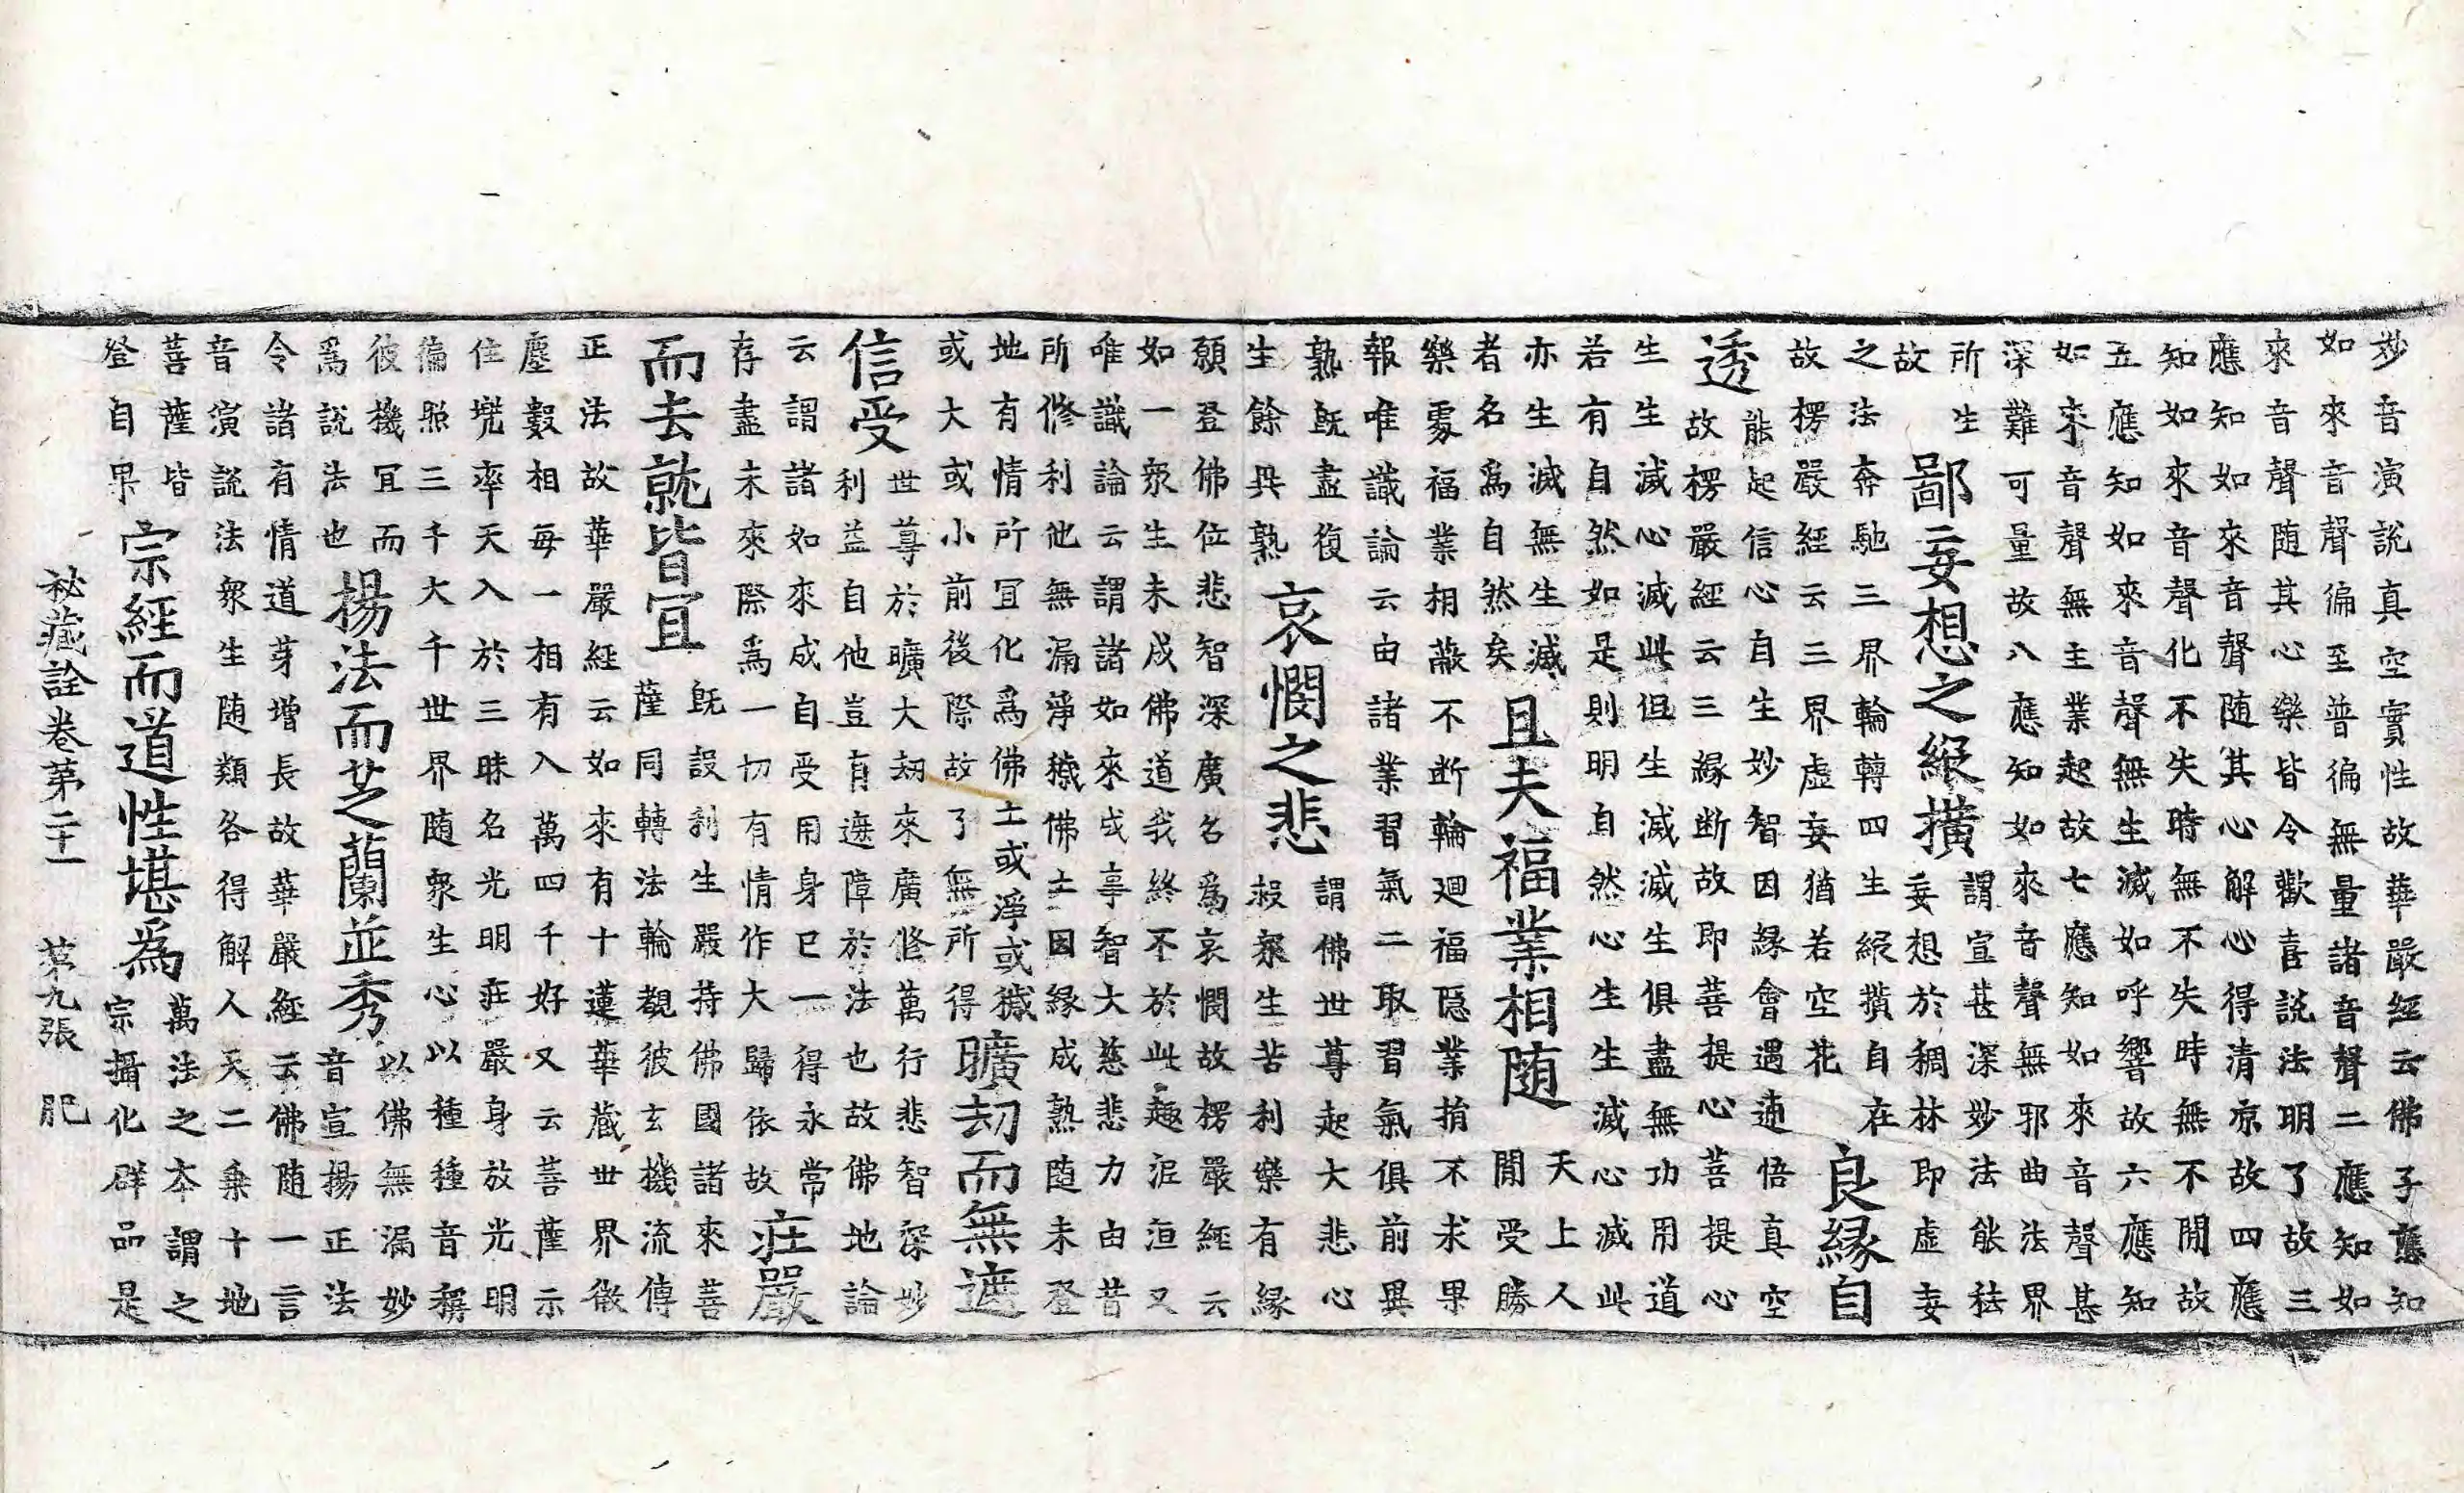 妙音演說真空實性故華嚴經云佛子應知
如來音聲徧至普徧無量諸音聲二應知如
來音聲随其心樂皆令歡喜説法明了故三
應知如來音聲随其心解心得清凉故四應
知如來音聲化不失時無不失時無不聞故
五應知如來音聲無生滅如呼響故六應知
如來音聲無主業起故七應知如來音聲甚
深難可量故八應知如來音聲無邪曲法界
所生
故
鄙妄想之縱撗
謂宣甚深妙法能祛
妄想於稠林即虛妄
之法奔馳三界輪轉四生縱撗自在
故楞嚴經云三界虛妄猶若空花
良緣自
透
能起信心自生妙智因緣會遇速悟真空
故楞嚴經云三緣断故即菩提心菩提心
生生滅心滅此但生滅滅生俱盡無功用道
若有自然如是則明自然心生生滅心滅此
亦生滅無生滅
者名為自然矣
且夫福業相随
天上人
間受勝
樂䖏福業相蔽不断輪廻福隐業揹不求果
報唯識論云由諸業習氣二取習氣俱前異
熟既盡復
生餘異熟
哀憫之悲
謂佛世尊起大悲心
救衆生苦利樂有緣
願登佛位悲智深廣名爲哀憫故楞嚴經云
如一衆生未成佛道我終不於此趣泥洹又
唯識論云謂諸如來成事智大慈悲力由昔
所修利他無漏淨穢佛土因緣成熟随未登
地有情所宜化爲佛土或淨或穢
或大或小前後際故了無所得
曠劫而無遮
信受
世尊於曠大劫來廣修萬行悲智深妙
利益自他豈有遮障於法也故佛地論
云謂諸如來成自受用身已一得永常
存盡未來際爲一切有情作大歸依故
莊嚴
而去就皆宜
既設利生嚴持佛國諸來菩
薩同轉法輪覩彼玄機流傳
正法故華嚴經云如來有十蓮華藏世界微
塵數相每一相有入萬四千好又云菩薩示
住兠率天入於三昧名光明莊嚴身放光明
徧照三千大千世界随衆生心以種種音稱
彼機冝而
爲説法也
揚法而芝蘭並秀
以佛無漏妙
音宣揚正法
令諸有情道芽增長故華嚴經云佛随一言
音演說法衆生随類各得解人天二乘十地
菩薩皆
登自果
宗經而道性堪爲
萬法之本謂之
宗攝化群品是
祕藏詮卷第二十一 苐九張 肥